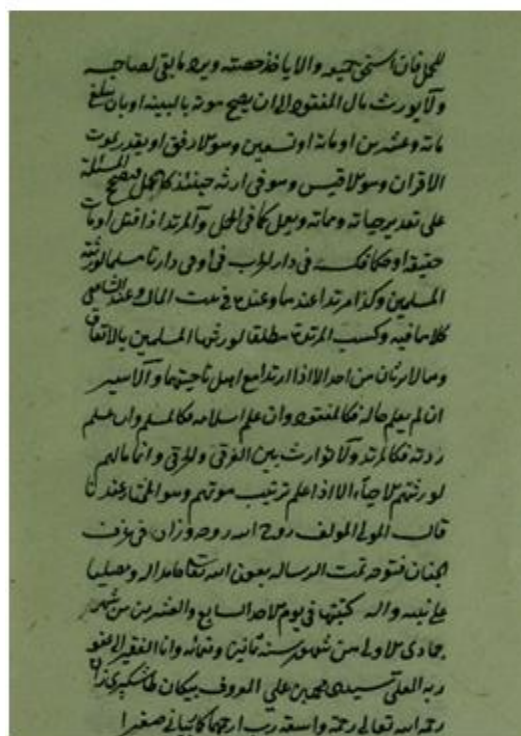 للحمل فان استحق جميعه والا ياخذ حصته ويرد ما بقى لصاحبه
ولا يورث مال المفقود الى ان يصح موته بالبينه او بان يبلغ
مائة وعشرين او مائة او تسعين وهو الارفق او يقدر بموت
الاقران وهو الاقيس وهو فى ارثه حينئذ كالحمل فيصح المسئلة
على تقدير حياته ومماته ويعمل كما فى الحمل والمرتد اذا قتل او مات
حقيقة او حكما فكسبه فى دار الحرب فئ وفى دارنا مسلما لورثته
المسلمين وكذا مرتدا عندهما وعنده فى بيت المال وعند الشافعى
كلاهما فيه وكسب المرتدة مطلقا لورثتها المسلمين بالاتفاق
وهما لا يرثان من احد الا اذا ارتدا مع اهل ناحيتهما والاسير
ان لم يعلم حاله فكالمفقود وان علم اسلامه فكالمسلم وان علم
ردته فكالمرتد ولا توارث بين الغرقى والحرقى وانما مالهم
لورثتهم الاحياء الا اذا علم ترتيب موتهم وهو المختار عندنا
قال المولى المؤلف روح الله روحه وزاد فى غرف
الجنان فتوحه تمت الرساله بعون الله تعالى حامدا له ومصليا
على نبيه واله كتبتها فى يوم الاحد السابع والعشرين من شهر
جمادى الاولى من شهور سنة ثمانين وتسعمائه وانا الفقير الى عفو
ربه العلى سيدى محمد بن على المعروف ببيكان طاشكپرى زاده
رحمه الله تعالى رحمة واسعة رب ارحمهما كما ربيانى صغيرا